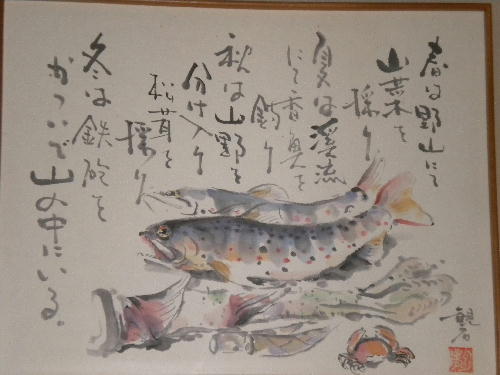 春は野山にて
山菜を
採り
夏は渓流
にて香魚を
釣り
秋は山野を
分け入り
松茸を
採り
冬は鉄砲を
かついで山の中にいる。